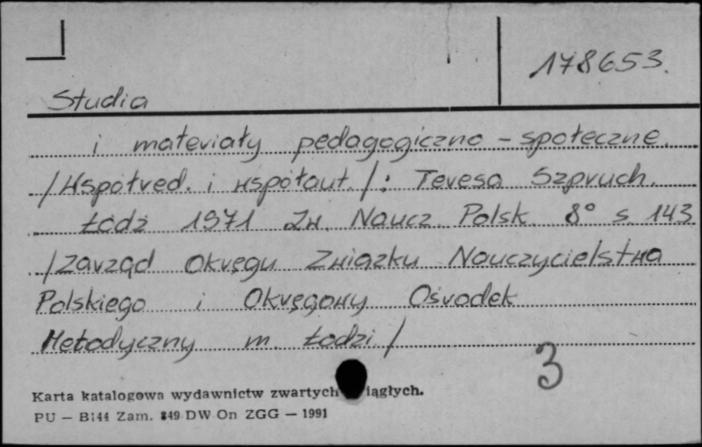 178653.
Studia
i materiały pedagogiczno - społeczne.
/Współred. i współaut./: Teresa Szpruch.
Łódź 1971 Zw. Naucz. Polsk. 8° s 143
/Zarząd Okręgu Związku Nauczycielstwa
Polskiego i Okręgowy Ośrodek
Metodyczny m. Łodzi/
3
Karta katalogowa wydawnictw zwartych iągłych.
PU — B144 Zam. 849 DW On ZGG — 1991